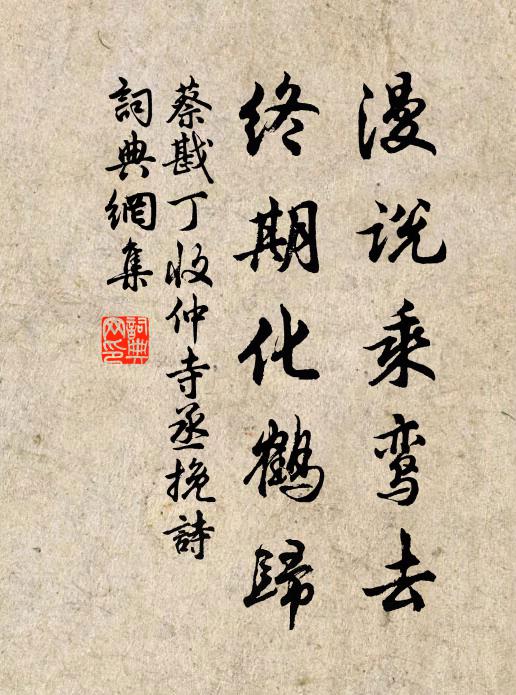 漫说乘鸾去
终期化鹤歸
蔡戡丁收仲寺丞挽詩
詞典網集
詞典
网印